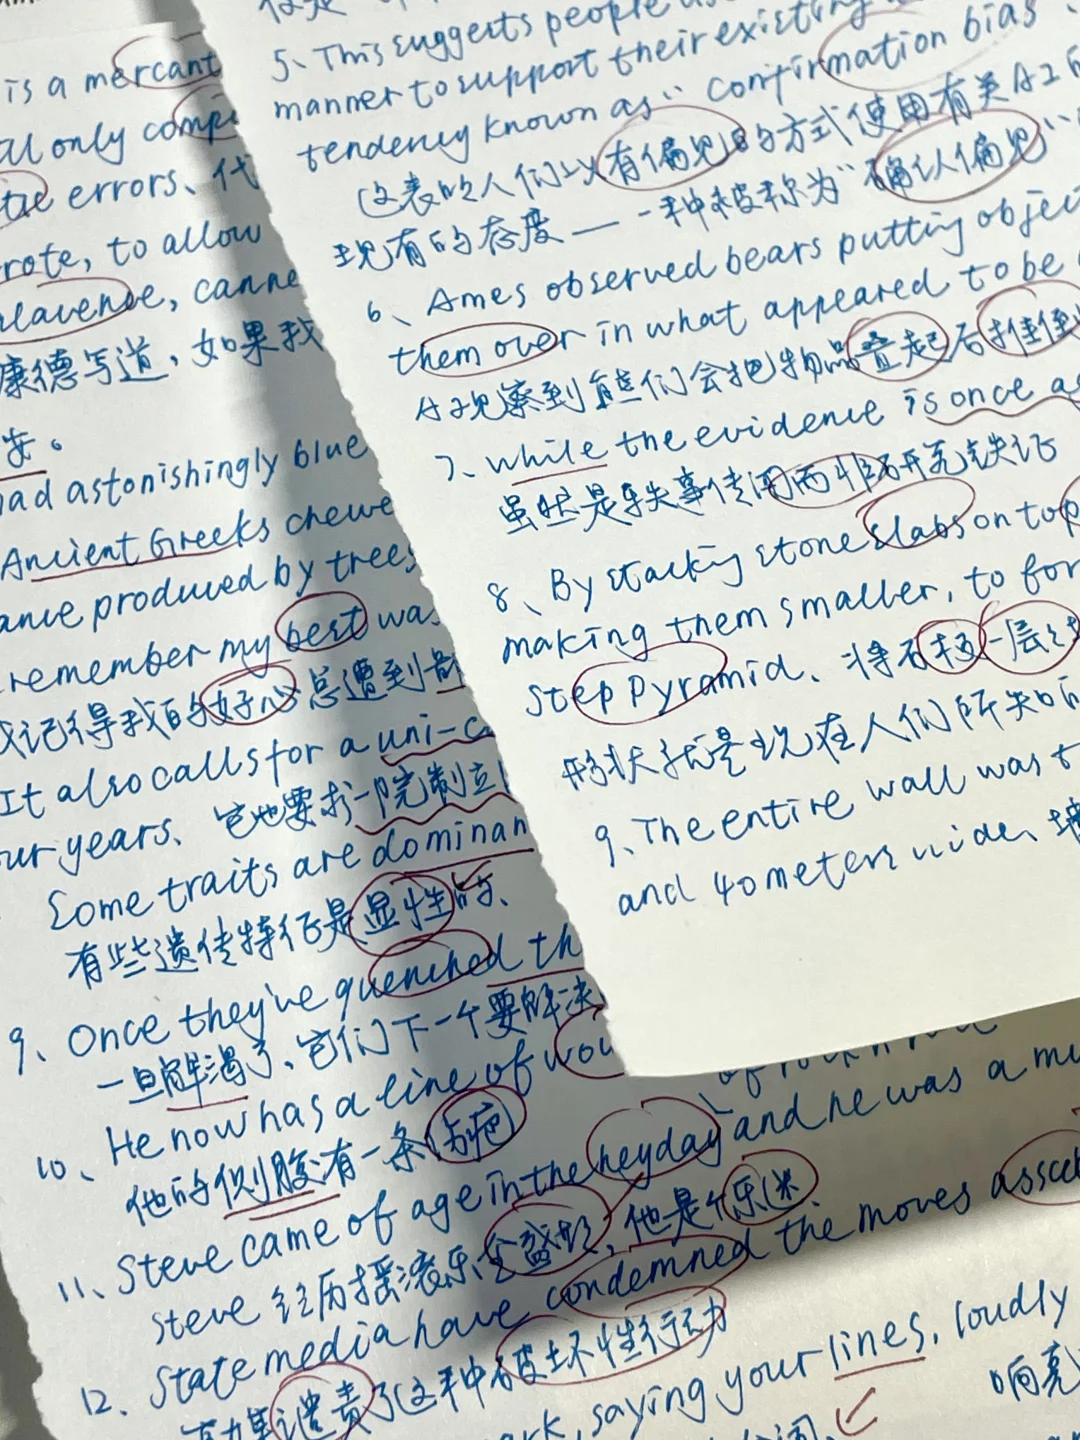 is a mercant
only comp
errors、代
rote, to allow
康德写道，如果我
步。
had astonishingly blue
Ancient Greeks chewe
ance produced by trees
remember my best was
我记得我的好心总遭到
It also calls for a uni-c
our years、它也要求一院制立
Some traits are dominan
有些遗传特征是显性的、
9、Once they've quenched th
一旦解渴了、它们下一个要解决
10、He now has a line of wou
他的侧腹有一条伤疤
of rock n roll
11、Steve came of age in the heyday and he was a mu
Steve 经历摇滚乐全盛期，他是个乐迷
12、State media have condemned the moves as
谴责了这种破坏性行动
saying your lines, loudly
响亮
5、This suggests people
manner to support their existing
tendency known as "confirmation bias"
这表明人们以有偏见的方式使用有关AI的
现有的态度——一种被称为"确认偏见"
6、Ames observed bears putting objec
them over in what appeared to be
A观察到熊们会把物品叠起后推倒
7、While the evidence is once as
虽然是轶事传闻而非
8、By stacking stone slabs on top
making them smaller, to for
step pyramid、将石板一层
形状就是现在人们所知的
9、The entire wall was t
and 40 meters wide、